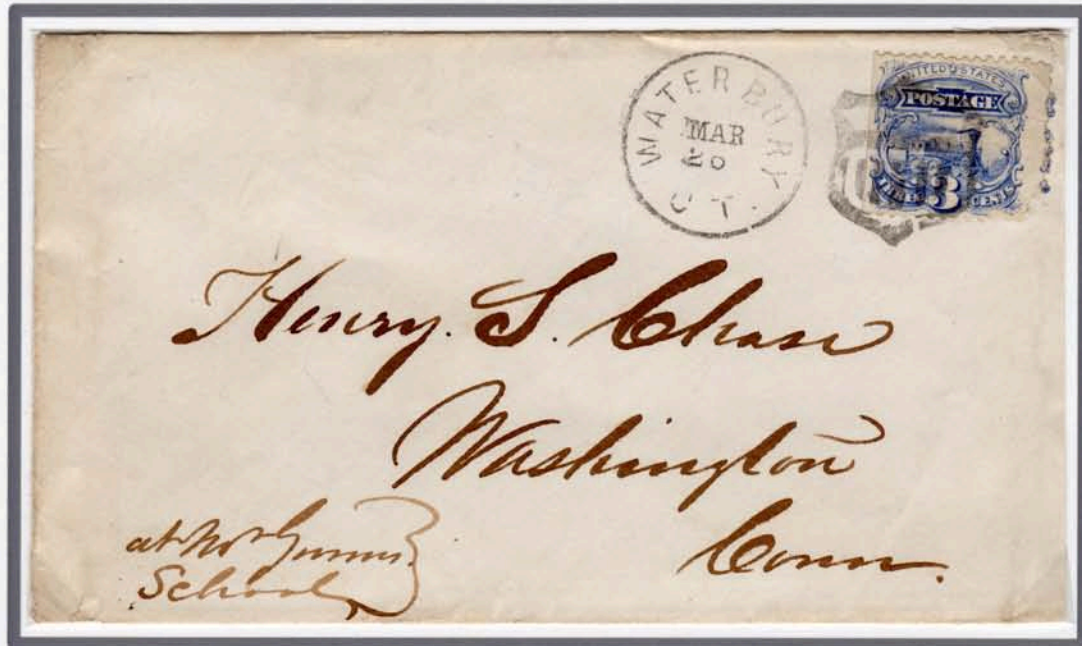 WATERBURY
MAR
20
CT.
UNITED STATES
POSTAGE
3
Henry. S. Chase
Washington
Conn.
at Mr Gunns
School